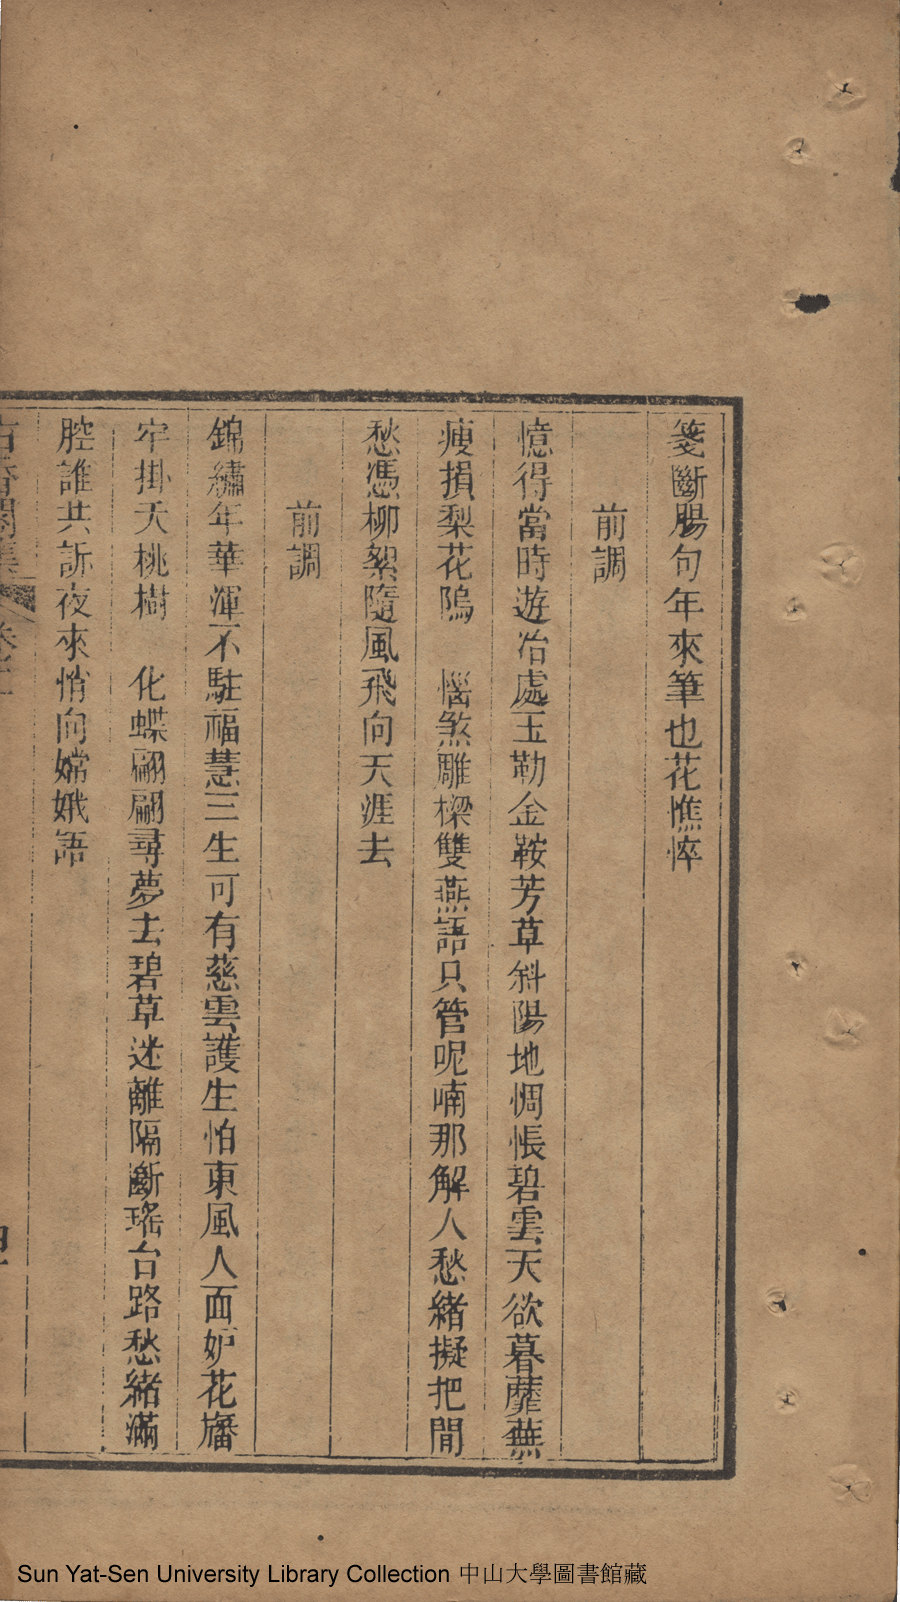 箋斷腸句年來筆也花憔悴
前調
憶得當時遊冶處玉勒金鞍芳草斜陽地惆悵碧雲天欲暮蘼蕪
瘦損梨花塢　惱煞雕樑雙燕語只管呢喃那解人愁緒擬把閒
愁憑柳絮隨風飛向天涯去
前調
錦繡年華渾不駐福慧三生可有慈雲護生怕東風人面妒花旛
牢掛天桃樹　化蝶翩翩尋夢去碧草迷離隔斷瑤台路愁緒滿
腔誰共訴夜來悄向嫦娥語
Sun Yat-Sen University Library Collection 中山大學圖書館藏